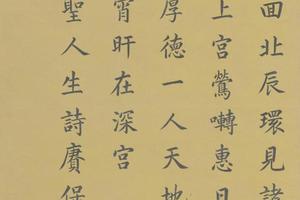 面北辰環見諸
上宮鶯囀惠日
厚德一人天地
宵旰在深宮
聖人生詩賡保